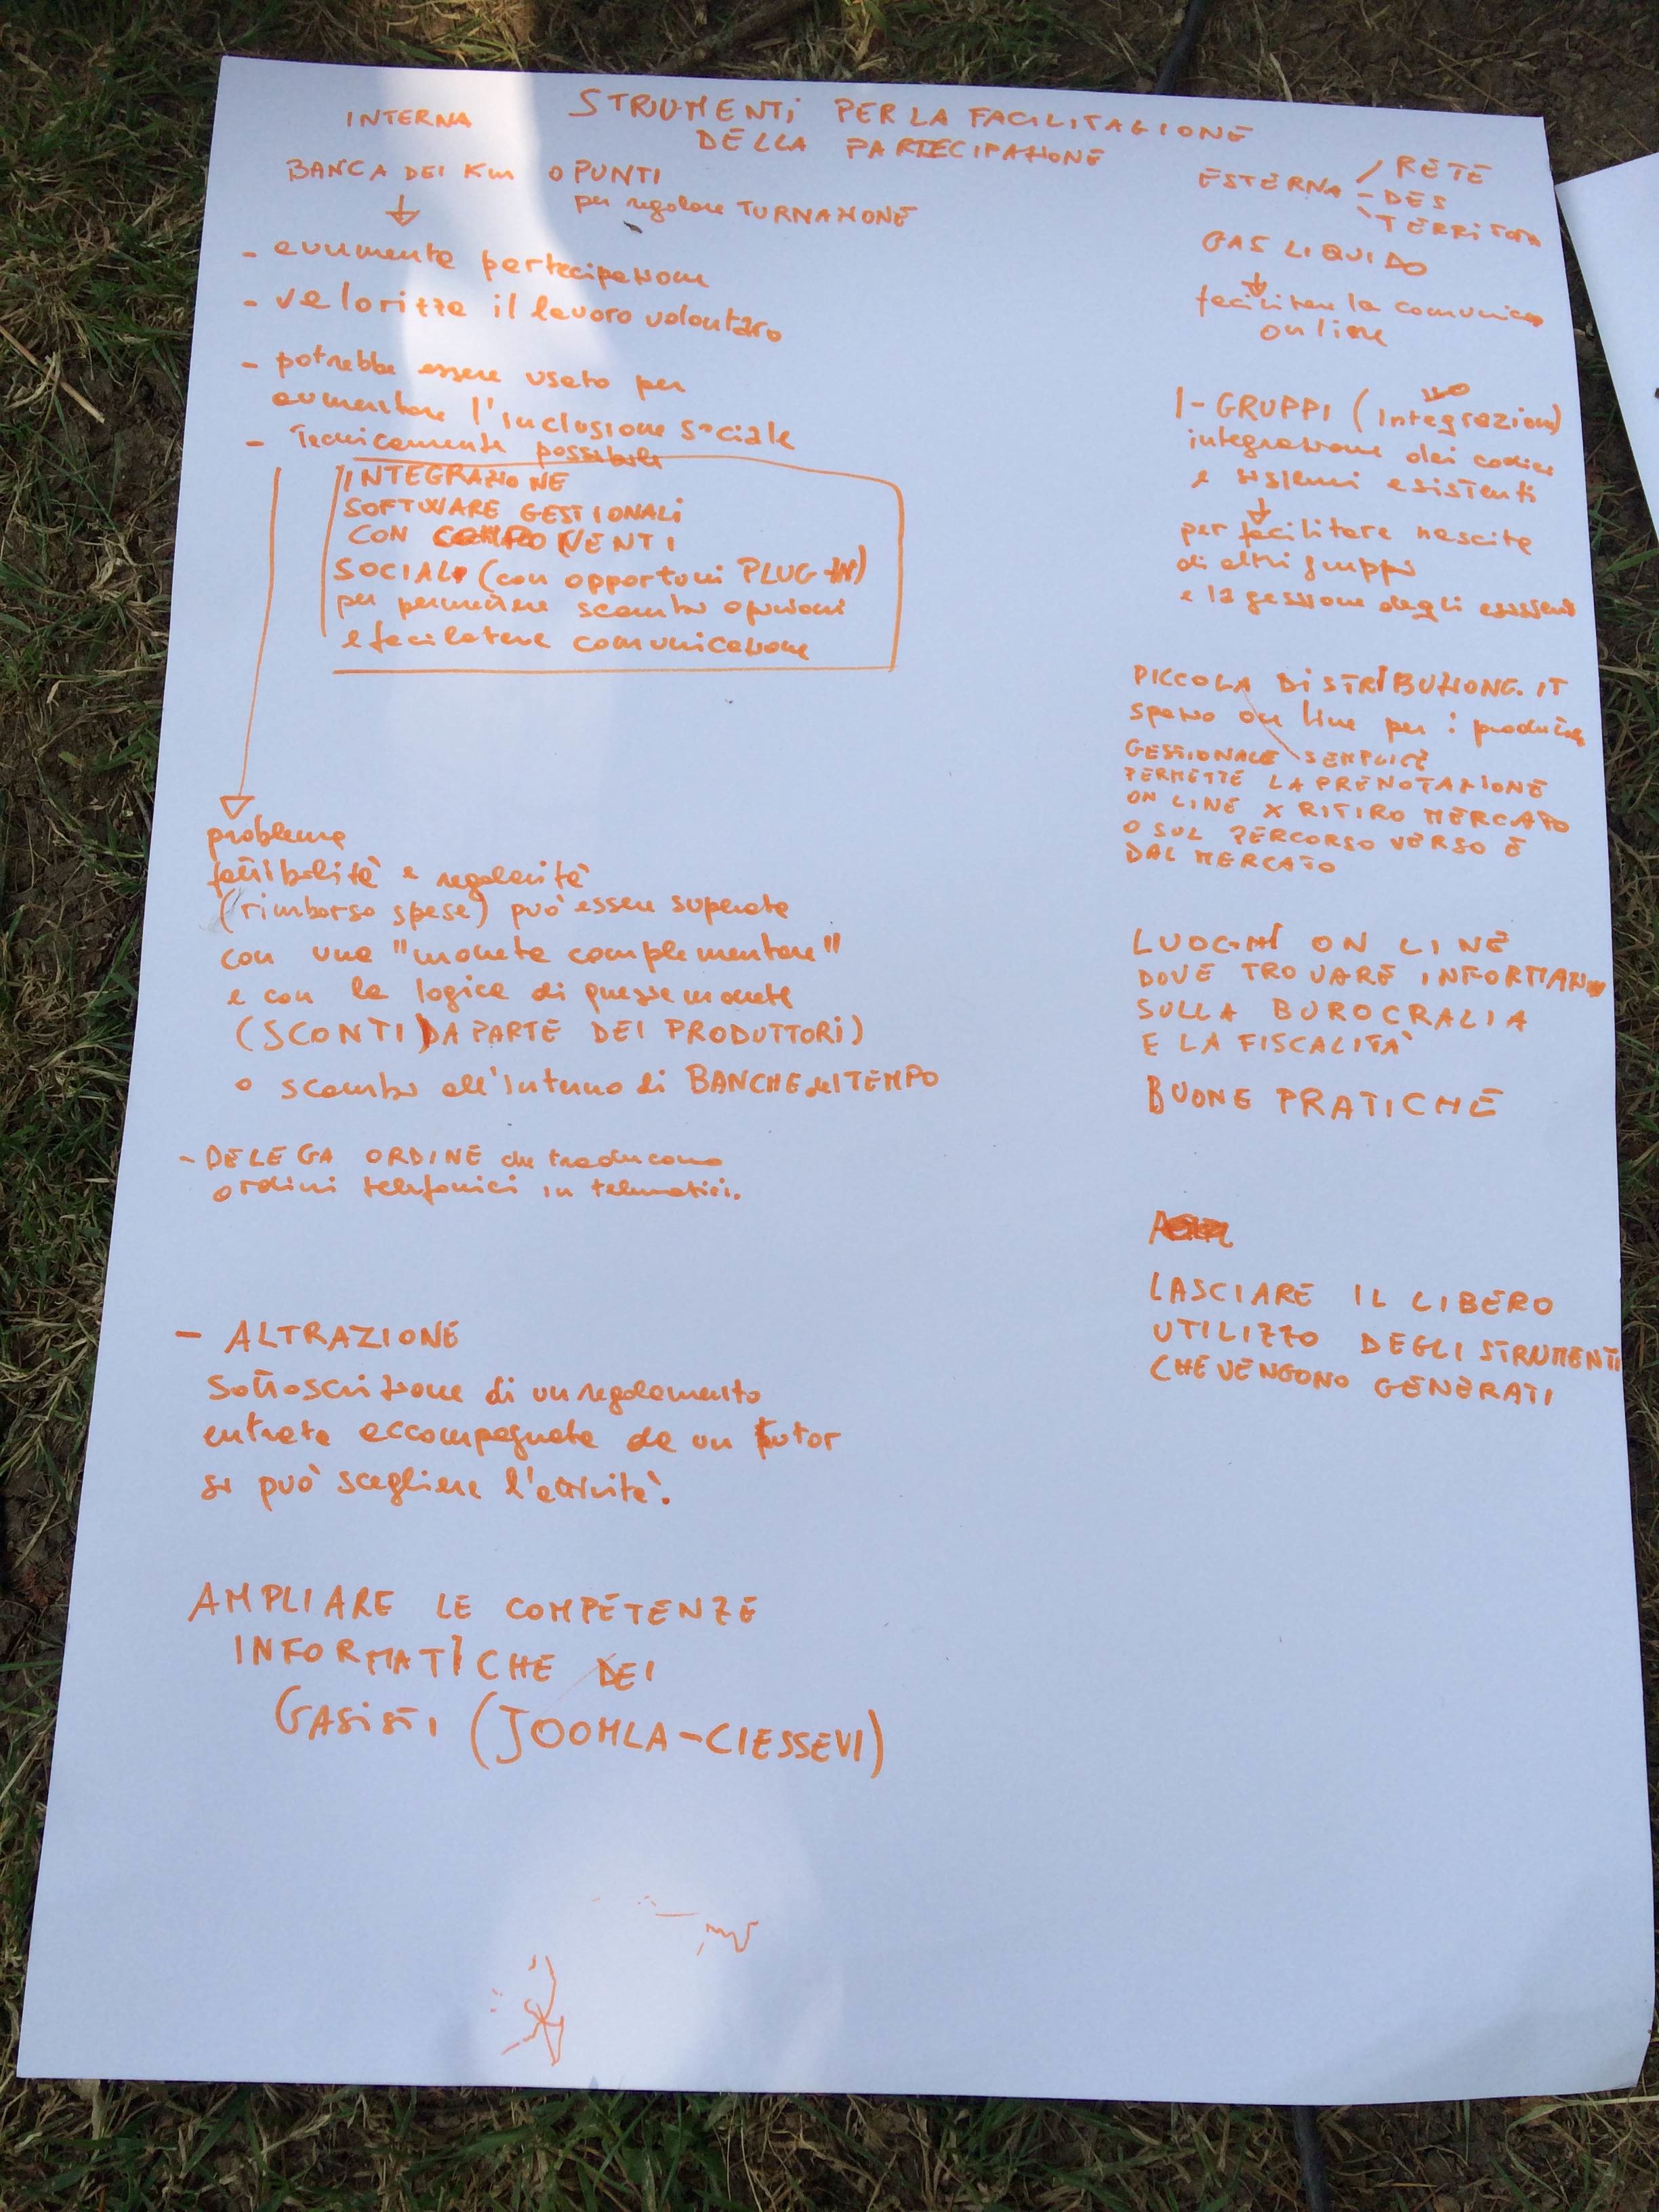 STRUMENTI PER LA FACILITAZIONE
DELLA PARTECIPAZIONE
INTERNA
BANCA DEI Km O PUNTI
per regolare TURNAZIONE
- aumenta partecipazione
- valorizza il lavoro volontaro
- potrebbe essere usato per
aumentare l'inclusione sociale
- Tecnicamente possibile
INTEGRAZIONE
SOFTWARE GESTIONALI
CON COMPONENTI
SOCIALI (con opportuni PLUG-IN)
per permettere scambio opinioni
e facilitare comunicazione
problema
fattibilità e regolarità
(rimborso spese) può essere superata
con una "moneta complementare"
e con la logica di queste monete
(SCONTI DA PARTE DEI PRODUTTORI)
o scambio all'interno di BANCHE del TEMPO
- DELEGA ORDINE che traducono
ordini telefonici in telematici.
- ALTRAZIONE
sottoscrizione di un regolamento
entrata accompagnata da un tutor
si può scegliere l'attività.
AMPLIARE LE COMPETENZE
INFORMATICHE DEI
GASISTI (JOOMLA-CIESSEVI)
ESTERNA / RETE
- DES
TERRITORI
GAS LIQUIDO
facilitare la comunicaz
online
I-GRUPPI (Integrazioni)
integrazione dei codici
e sistemi esistenti
per facilitare nascita
di altri gruppi
e la gestione degli esistenti
PICCOLA DISTRIBUZIONE.IT
spazio on line per i produttori
GESTIONALE SEMPLICE
PERMETTE LA PRENOTAZIONE
ON LINE X RITIRO MERCATO
O SUL PERCORSO VERSO E
DAL MERCATO
LUOGHI ON LINE
DOVE TROVARE INFORMAZ
SULLA BUROCRALIA
E LA FISCALITA'
BUONE PRATICHE
LASCIARE IL LIBERO
UTILIZZO DEGLI STRUMENTI
CHE VENGONO GENERATI